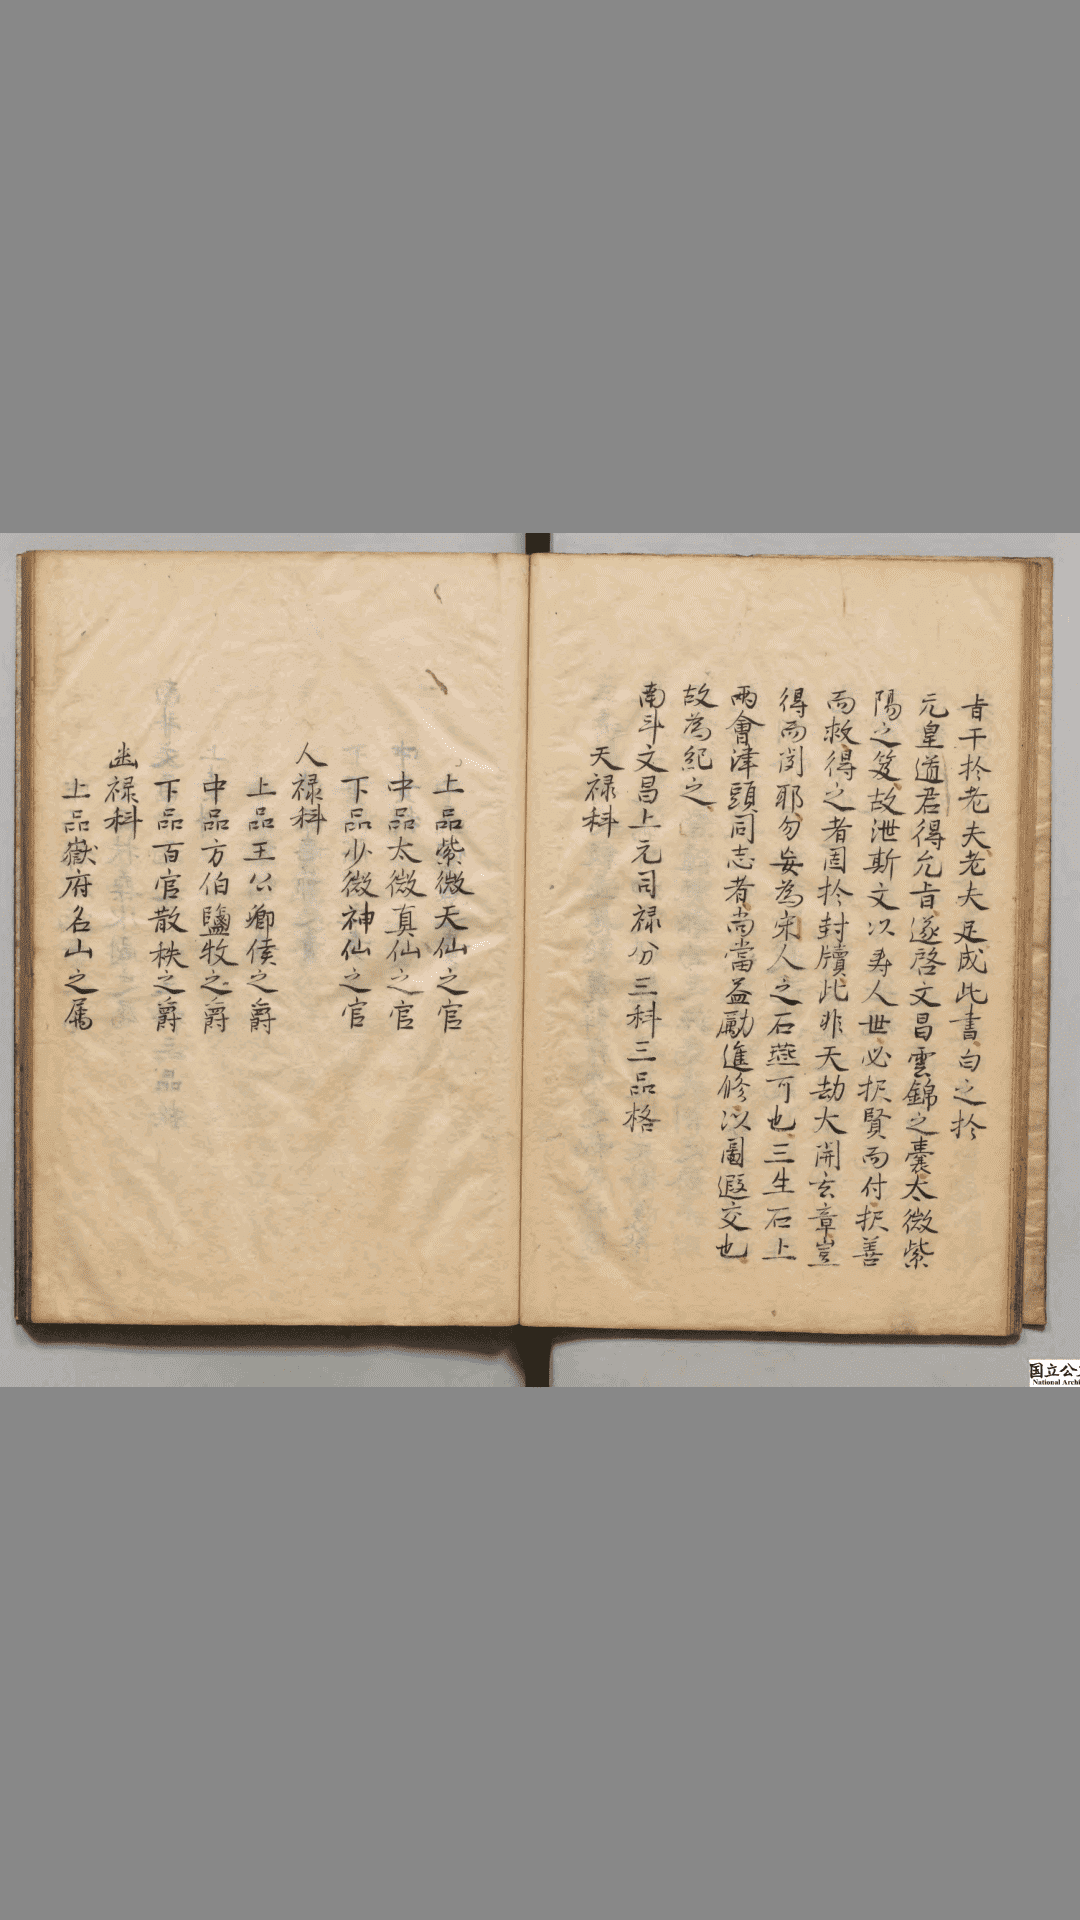 旨干於老夫老夫足成此書白之於
元皇道君得允旨遂啓文昌雲錦之囊太微紫
陽之笈故泄斯文以壽人世必択賢而付択善
而救得之者固於封牘此非天劫大開玄章豈
得而閲耶勿妄為宋人之石燕可也三生石上
兩會津頭同志者尚當益勵進修以圖遐交也
故為紀之
南斗文昌上元司禄分三科三品格
天禄科
上品紫微天仙之官
中品太微真仙之官
下品少微神仙之官
人禄科
上品王公卿侯之爵
中品方伯鹽牧之爵
下品百官散秩之爵
幽禄科
上品嶽府名山之属
国立公
National Archi